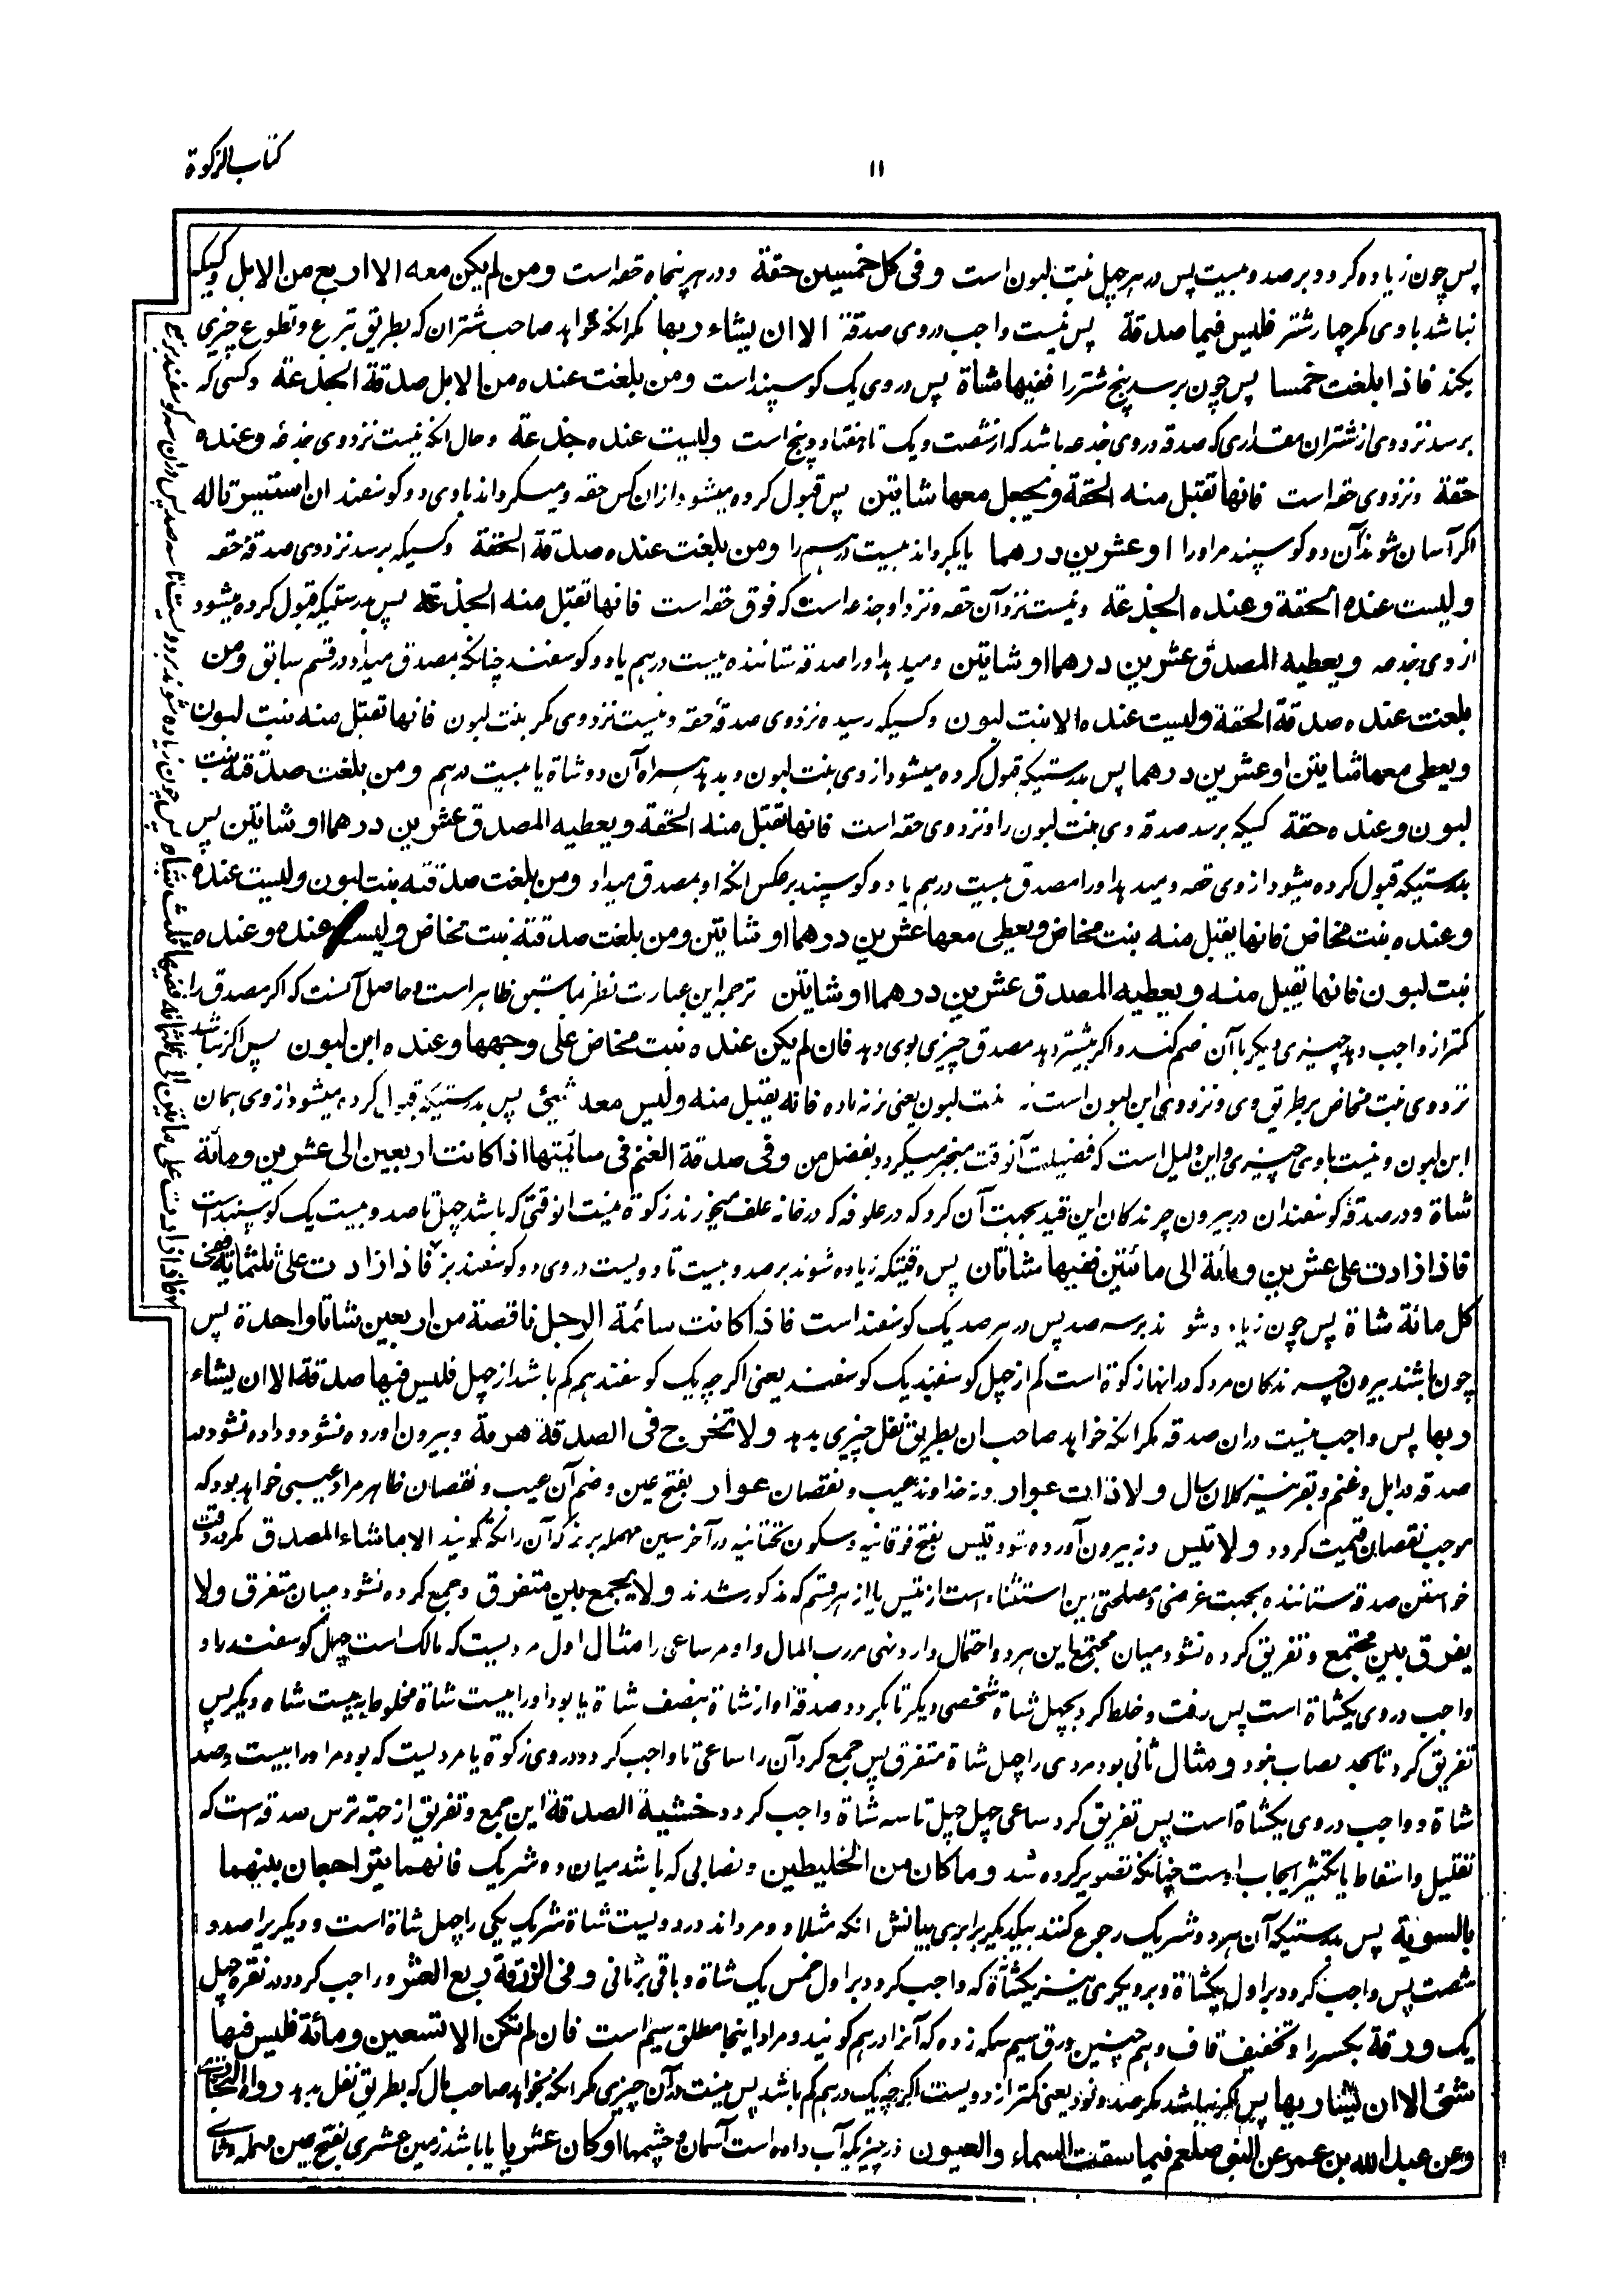 کتاب الزکوة
۱۱
پس چون زیاده گردد بر صد و بیست پس در هر چهل بنت لبون است وفی کل خمسین حقة و در هر پنجاه حقه است ومن لم یکن معه الا اربع من الابل وکسیکه
نباشد با وی مگر چهار شتر فلیس فیها صدقة پس نیست واجب در وی صدقة الا ان یشاء ربها مگر انکه خواهد صاحب شتران که بطریق تبرع و تطوع چیزی
بکند فاذا بلغت خمسا پس چون برسد پنج شتر را ففیها شاة پس در وی یک کوسپند است ومن بلغت عنده من الابل صدقة الجذعة وکسی که
برسد نزد وی از شتران مقداری که صدقه در وی جذعه باشد که از شصت و یک تا هفتاد و پنج است ولیست عنده جذعة و حال انکه نیست نزد وی جذعه وعنده
حقة ونزد وی حقه است فانها تقبل منه الحقة ویجعل معها شاتین پس قبول کرده میشود ازان کس حقه ومیگرداند با وی دو کوسفند ان استیسرتا له
اکر آسان شوند آن دو کوسپند مر اورا او عشرین درهما یا بگرداند بیست درهم را ومن بلغت عنده صدقة الحقة وکسیکه برسد نزد وی صدقه حقه
ولیست عنده الحقة وعنده الجذعة ونیست نزد آن حقه ونزد او جذعه است که فوق حقه است فانها تقبل منه الجذعة پس بدرستیکه قبول کرده میشود
از وی جذعه ویعطیه المصدق عشرین درهما او شاتین ومیدهد اورا صدقه ستاننده بیست درهم یا دو کوسفند چنانکه بمصدق میداد در قسم سابق ومن
بلغت عنده صدقة الحقة ولیست عنده الا بنت لبون وکسیکه رسیده نزد وی صدقهٔ حقه ونیست نزد وی مگر بنت لبون فانها تقبل منه بنت لبون
ویعطی معها شاتین او عشرین درهما پس بدرستیکه قبول کرده میشود از وی بنت لبون وبدهد همراه آن دو شاة یا بیست درهم ومن بلغت صدقته بنت
لبون وعنده حقة کسیکه برسد صدقه وی بنت لبون را ونزد وی حقه است فانها تقبل منه الحقة ویعطیه المصدق عشرین درهما او شاتین پس
بدرستیکه قبول کرده میشود از وی حقه ومیدهد اورا مصدق بیست درهم یا دو کوسپند برعکس انکه او بمصدق میداد ومن بلغت صدقته بنت لبون ولیست عنده
وعنده بنت مخاض فانها یقبل منه بنت مخاض ویعطی معها عشرین درهما او شاتین ومن بلغت صدقته بنت مخاض ولیست عنده وعنده
بنت لبون فانها یقبل منه ویعطیه المصدق عشرین درهما او شاتین ترجمه این عبارت نظر بما سبق ظاهر است وحاصل آنست که اکر مصدق را
کمتر از واجب دهد چیزی دیگر با آن ضم کند واکر بیشتر دهد مصدق چیزی بوی دهد فان لم یکن عنده بنت مخاض علی وجهها وعنده ابن لبون پس اکر نباشد
نزد وی بنت مخاض بر طریق وی ونزد وی ابن لبون است نه بنت لبون یعنی نر نه ماده فانه یقبل منه ولیس معه شیئ پس بدرستیکه قبول کرده میشود از وی همان
ابن لبون ونیست با وی چیزی واین دلیل است که فضیلت آنوقت منجبر میگردد بفضل من وفی صدقة الغنم فی سائمتها اذا کانت اربعین الی عشرین ومائة
شاة ودر صدقه کوسفندان در بیرون چرندکان این قید بجهت آن کرد که در علوفه که در خانه علف میخورند زکوة نیست انوقتی که باشد چهل تا صد وبیست یک کوسپند است
فاذا زادت علی عشرین ومائة الی مائتین ففیها شاتان پس وقتیکه زیاده شوند بر صد وبیست تا دویست در وی دو کوسفند بز فاذا زادت علی ثلثمائة ففی
کل مائة شاة پس چون زیاده شوند بر سه صد پس در هر صد یک کوسفند است فاذا کانت سائمة الرجل ناقصة من اربعین شاة واحدة پس
چون باشند بیرون چرندکان مرد که در انها زکوة است کم از چهل کوسفند یک کوسفند یعنی اکر چه یک کوسفند هم کم باشد از چهل فلیس فیها صدقة الا ان یشاء
ربها پس واجب نیست دران صدقه مگر انکه خواهد صاحب ان بطریق نفل چیزی بدهد ولا تخرج فی الصدقة هرمة وبیرون اورده نشود وداده نشود در
صدقه در ابل وغنم وبقر نیز کلان سال ولا ذات عوار ونه خداوند عیب ونقصان عوار بفتح عین وضم آن عیب ونقصان ظاهر مراد عیبی خواهد بود که
موجب نقصان قیمت کردد ولا تیس ونه بیرون آورده شود تیس بفتح فوقانیه وسکون تحتانیه در آخر سین مهمله بر نر که آن را تکه کویند الا ما شاء المصدق مگر در وقت
خواستن صدقه ستاننده بجهت غرضی ومصلحتی این استثناء است از تیس یا از هر قسم که مذکور شدند ولا یجمع بین متفرق وجمع کرده نشود میان متفرق ولا
یفرق بین مجتمع وتفریق کرده نشود میان مجتمع این هر دو احتمال دارد نهی مر رب المال را ومر ساعی را مثال اول مردیست که مالک است چهل کوسفند را و
واجب در وی یکشاة است پس رفت وخلط کرد بچهل شاة شخصی دیگر تا بگردد صدقه او از شاة بنصف شاة یا بود اورا بیست شاة مخلوط به بیست شاه دیگر پس
تفریق کرد تا بحد نصاب نبود ومثال ثانی بود مردی را چهل شاة متفرق پس جمع کرد آن را ساعی تا واجب کردد در وی زکوة یا مردیست که بود مر اورا بیست وصد
شاة وواجب در وی یکشاة است پس تفریق کرد ساعی چهل چهل تا سه شاة واجب کردد خشیة الصدقة این جمع وتفریق از جهة ترس صدقه است که
تقلیل واسقاط یا تکثیر ایجاب اوست چنانکه تصویر کرده شد وما کان من الخلیطین ونصابی که باشد میان دو شریک فانهما یتراجعان بینهما
بالسویة پس بدرستیکه آن هر دو شریک رجوع کنند بیکدیگر برابری بیانش انکه مثلا دو مرد اند در دویست شاة شریک یکی را چهل شاة است ودیگر را صد و
شصت پس واجب کردد بر اول یکشاة وبر دیگری نیز یکشاة که واجب کردد بر اول خمس یک شاة وباقی بر ثانی وفی الرقة ربع العشر وواجب کردد در نقره چهل
یک ورقة بکسر را وتخفیف قاف وهم چنین ورق سیم سکه زده که آنرا درهم کویند ومراد اینجا مطلق سیم است فان لم تکن الا تسعین ومائة فلیس فیها
شئ الا ان یشاء ربها پس اکر نباشد مگر صد ونود یعنی کمتر از دویست اکرچه یک درهم کم باشد پس نیست در آن چیزی مگر انکه بخواهد صاحب مال که بطریق نفل بدهد رواه البخاری
وعن عبد الله بن عمر عن النبی صلعم فیما سقت السماء والعیون در چیزیکه آب داده است آسمان وچشمها او کان عشریا یا باشد زمین عشری بفتح عین مهمله وثای
فاذا زادت علی مائتین الی ثلثمائة ففیها ثلث شیاه پس چون زیاده شوند بر دویست تا سه صد پس دران سه کوسفند